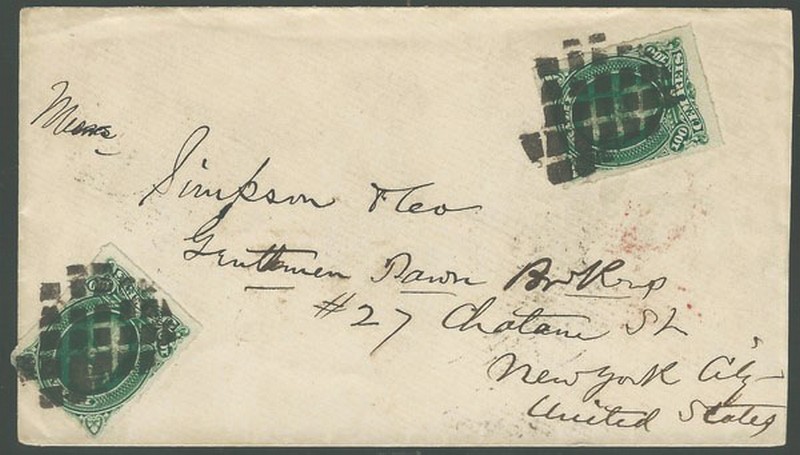 Messrs
Simpson & Co
Gentlemen Pawn Brokers
#27 Chatam St
New York City
United States
100 CEM REIS 100